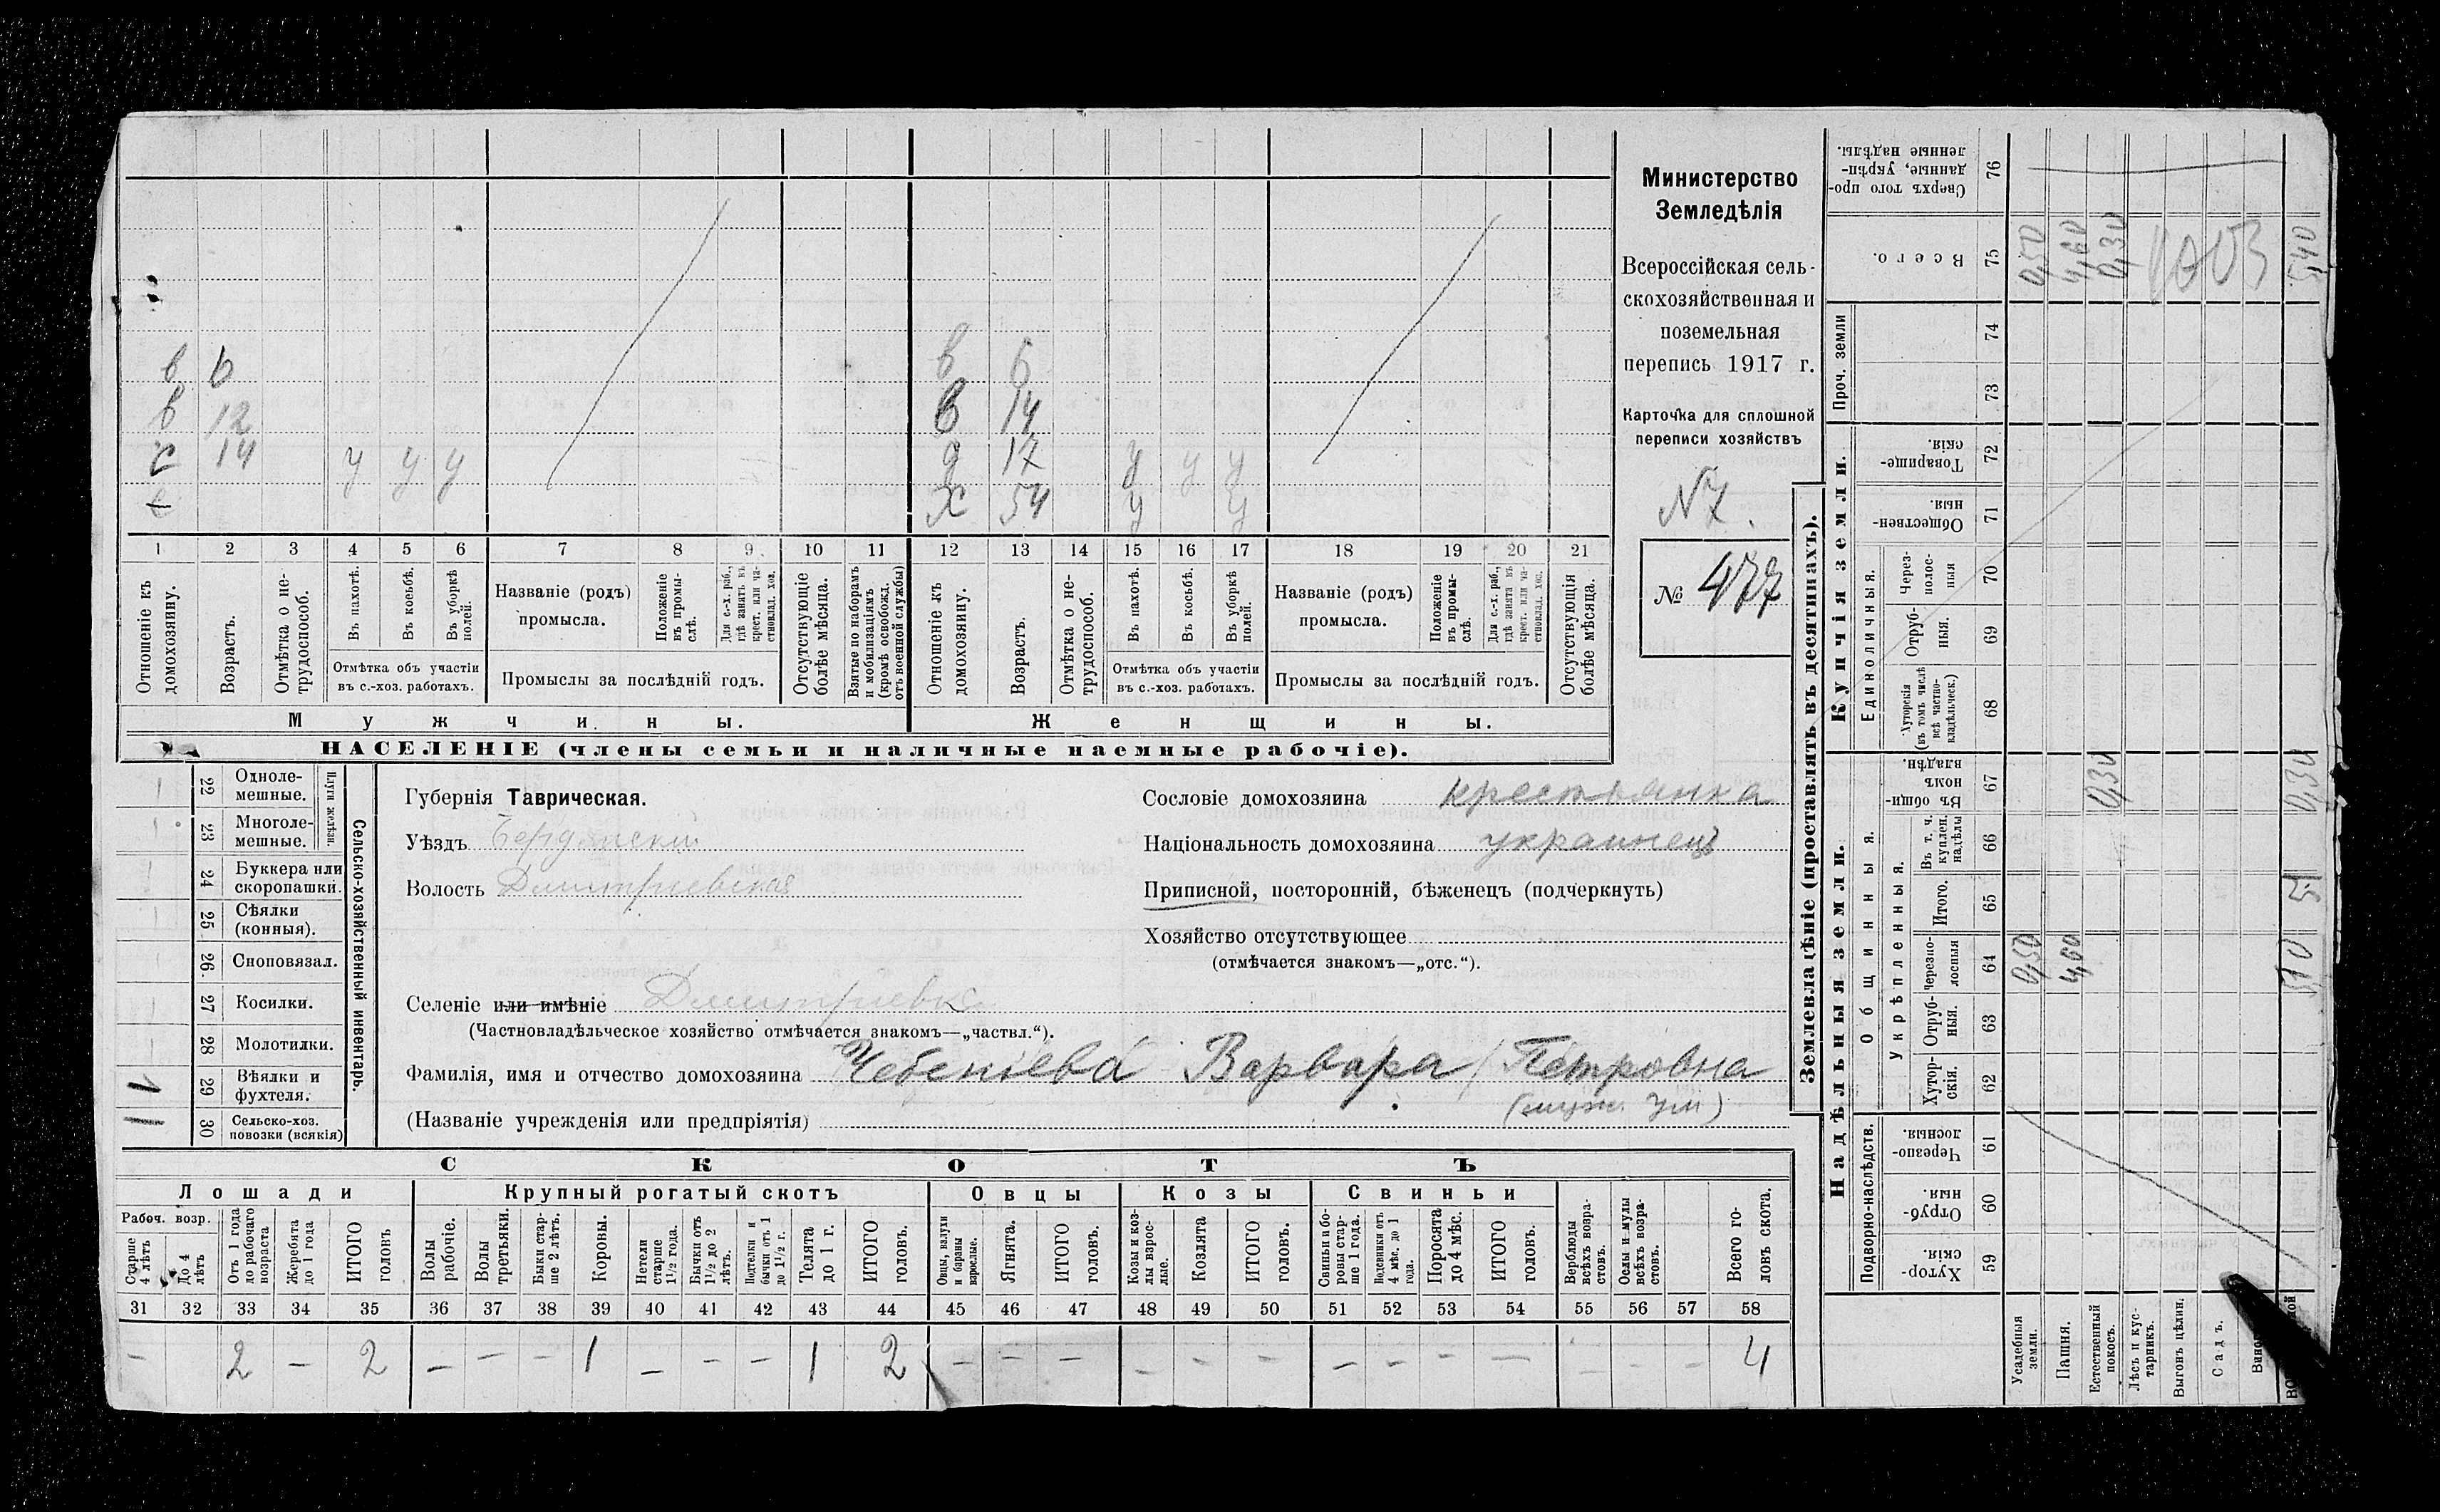 в 6 в 6
в 12 в 14
с 14 у у у д 17 у у у
х 54 у у
1 2 3 4 5 6 7 8 9 10 11 12 13 14 15 16 17 18 19 20 21
Отношеніе къ домохозяину.
Возрастъ.
Отмѣтка о не-
трудоспособ.
Въ пахотѣ.
Въ косьбѣ.
Въ уборкѣ
полей.
Отмѣтка объ участіи
въ с.-хоз. работахъ.
Названіе (родъ)
промысла.
Положеніе
въ промы-
слѣ.
Для с.-х. раб.,
гдѣ занятъ въ
крест. или ча-
стновлад. хоз.
Промыслы за послѣдній годъ.
Отсутствующіе
болѣе мѣсяца.
Взятые по наборамъ
и мобилизаціямъ
(кромѣ освобожд.
отъ военной службы)
Отношеніе къ
домохозяину.
Возрастъ.
Отмѣтка о не-
трудоспособ.
Въ пахотѣ.
Въ косьбѣ.
Въ уборкѣ
полей.
Отмѣтка объ участіи
въ с.-хоз. работахъ.
Названіе (родъ)
промысла.
Положеніе
въ промы-
слѣ.
Для с.-х. раб.,
гдѣ занята въ
крест. или ча-
стновлад. хоз.
Промыслы за послѣдній годъ.
Отсутствующія
болѣе мѣсяца.
Мужчины.
Женщины.
НАСЕЛЕНІЕ (члены семьи и наличные наемные рабочіе).
Министерство
Земледѣлія
Всероссійская сель-
скохозяйственная и
поземельная
перепись 1917 г.
Карточка для сплошной
переписи хозяйствъ
N7.
№ 477
22 Одноле-
мешные.
23 Многоле-
мешные.
Плуги желѣзн.
24 Буккера или
скоропашки.
25 Сѣялки
(конныя).
26. Сноповязал.
27 Косилки.
28 Молотилки.
29 Вѣялки и
фухтеля.
30 Сельско-хоз.
повозки (всякія)
Сельско-хозяйственный инвентарь.
Губернія Таврическая.
Уѣздъ Бердянскій
Волость Дмитріевская
Селеніе или имѣніе Дмитріевка
(Частновладѣльческое хозяйство отмѣчается знакомъ—„частвл.“).
Фамилія, имя и отчество домохозяина Варвара Петровна
(Названіе учрежденія или предпріятія)
Сословіе домохозяина крестьянка
Національность домохозяина украинецъ
Приписной, посторонній, бѣженецъ (подчеркнуть)
Хозяйство отсутствующее
(отмѣчается знакомъ—„отс.“).
СКОТЪ
Лошади
Крупный рогатый скотъ
Овцы
Козы
Свиньи
Рабоч. возр.
Старше
4 лѣтъ
До 4
лѣтъ
Отъ 1 года
до рабочаго
возраста
Жеребята
до 1 года
ИТОГО
головъ
Волы
рабочіе.
Волы
третьяки.
Быки стар-
ше 2 лѣтъ.
Коровы.
Нетели
старше
1½ года.
Бычки отъ
1½ до 2
лѣтъ.
Подтелки и
бычки отъ 1
до 1½ г.
Телята
до 1 г.
ИТОГО
головъ.
Овцы, валухи
и бараны
взрослые.
Ягнята.
ИТОГО
головъ.
Козы и коз-
лы взрос-
лые.
Козлята
ИТОГО
головъ.
Свиньи и бо-
ровы стар-
ше 1 года.
Подсвинки отъ
4 мѣс. до 1
года.
Поросята
до 4 мѣс.
ИТОГО
головъ.
Верблюды
всѣхъ возра-
стовъ.
Ослы и мулы
всѣхъ возра-
стовъ.
Всего го-
ловъ скота.
31 32 33 34 35 36 37 38 39 40 41 42 43 44 45 46 47 48 49 50 51 52 53 54 55 56 57 58
— 2 — 2 — — — 1 — — — 1 2 — — — — — — — — — — — — — 4
Землевладѣніе (проставлять въ десятинахъ).
Надѣльныя земли.
Купчія земли.
Проч. земли
Подворно-наслѣдств.
Общинныя.
Укрѣпленныя.
Единоличныя.
Сверхъ того про-
данные, укрѣп-
ленные надѣлы.
76
Всего.
75 0,50 4,60 0,30 5,40
1003
74
73
Товарище-
скія.
72
Обществен-
ныя.
71
Через-
полос-
ныя
70
Отруб-
ныя.
69
Хуторскія
(въ томъ числѣ
всѣ частно-
владѣльческ.)
68
Въ общи-
номъ
владѣн.
67 0,30 0,30
Въ т. ч.
куплен.
надѣлы
66
Итого.
65
Черезпо-
лосныя
64 0,50 4,60
Отруб-
ныя.
63
Хутор-
скія.
62
Черезпо-
лосныя.
61
Отруб-
ныя.
60
Хутор-
скія.
59
Усадебныя
земли.
Пашня.
Естественный
покосъ.
Лѣсъ и кус-
тарникъ.
Выгонъ цѣлин.
Садъ.